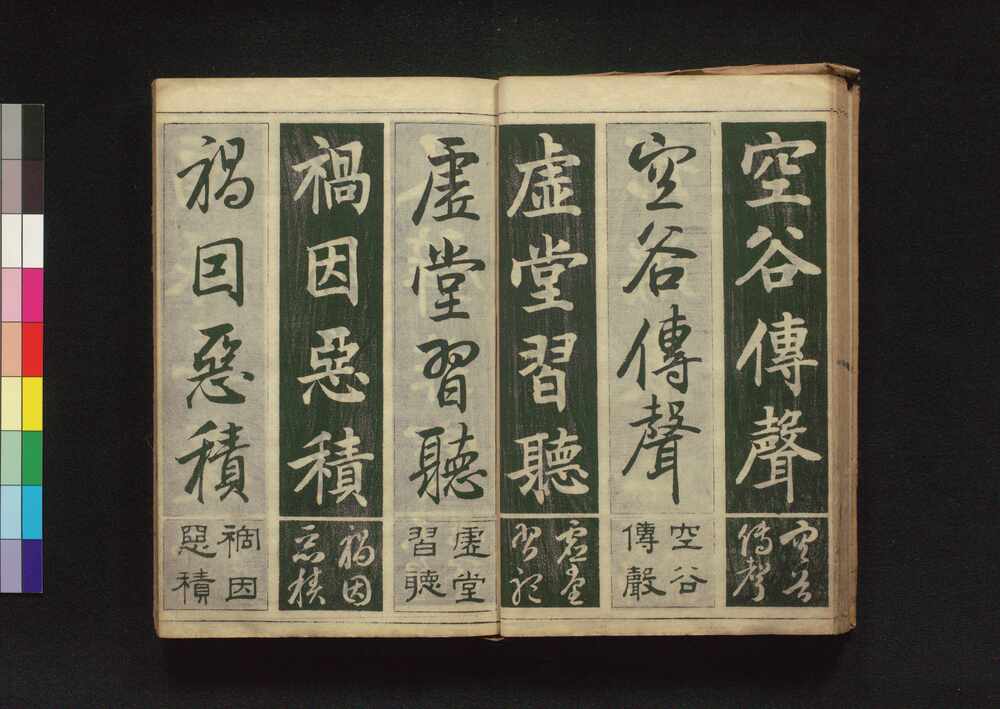 空谷傳聲
空谷
傳聲
空谷傳聲
空谷
傳聲
虛堂習聽
虛堂
習聽
虛堂習聽
虛堂
習聽
禍因惡積
禍因
惡積
禍因惡積
禍因
惡積